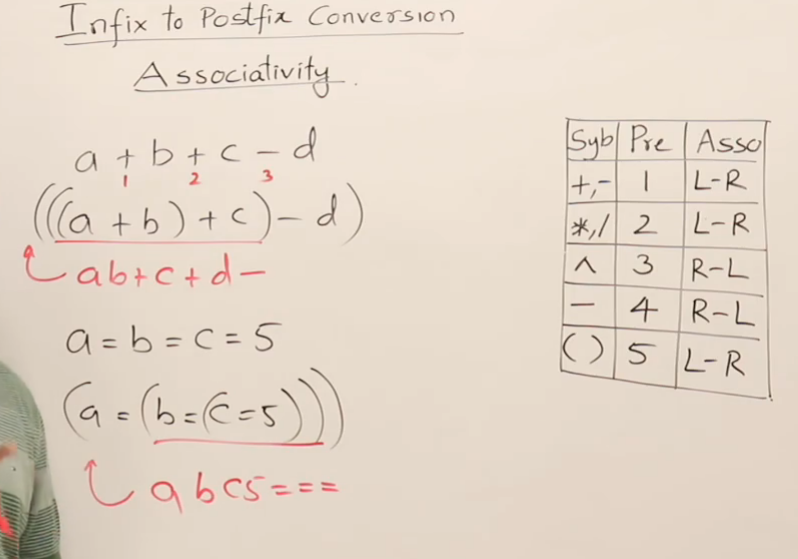 Infix to Postfix Conversion
Associativity.
a + b + c - d
1 2 3
(((a + b) + c) - d)
ab+c+d-
a = b = c = 5
(a = (b = (c = 5)))
abc5===
Syb Pre Asso
+,- 1 L-R
*,/ 2 L-R
^ 3 R-L
- 4 R-L
() 5 L-R